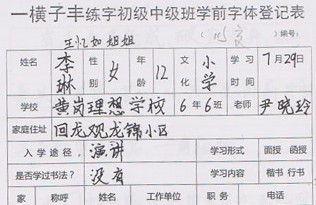 一横子丰练字初级中级班学前字体登记表
王忆如姐姐 （ ）编号：
姓名 李琳 性别 女 年龄 12 文化 小学 学习时间 7月29日
学校 黄岗理想学校 6年6班 老师 尹晓玲
家庭住址 回龙观龙锦小区
入学途径， 演讲 学习形式 面授 函授
是否学过书法？ 没有 学习内容 楷书 行书
家 称呼 姓名 工作单位 职务 电话